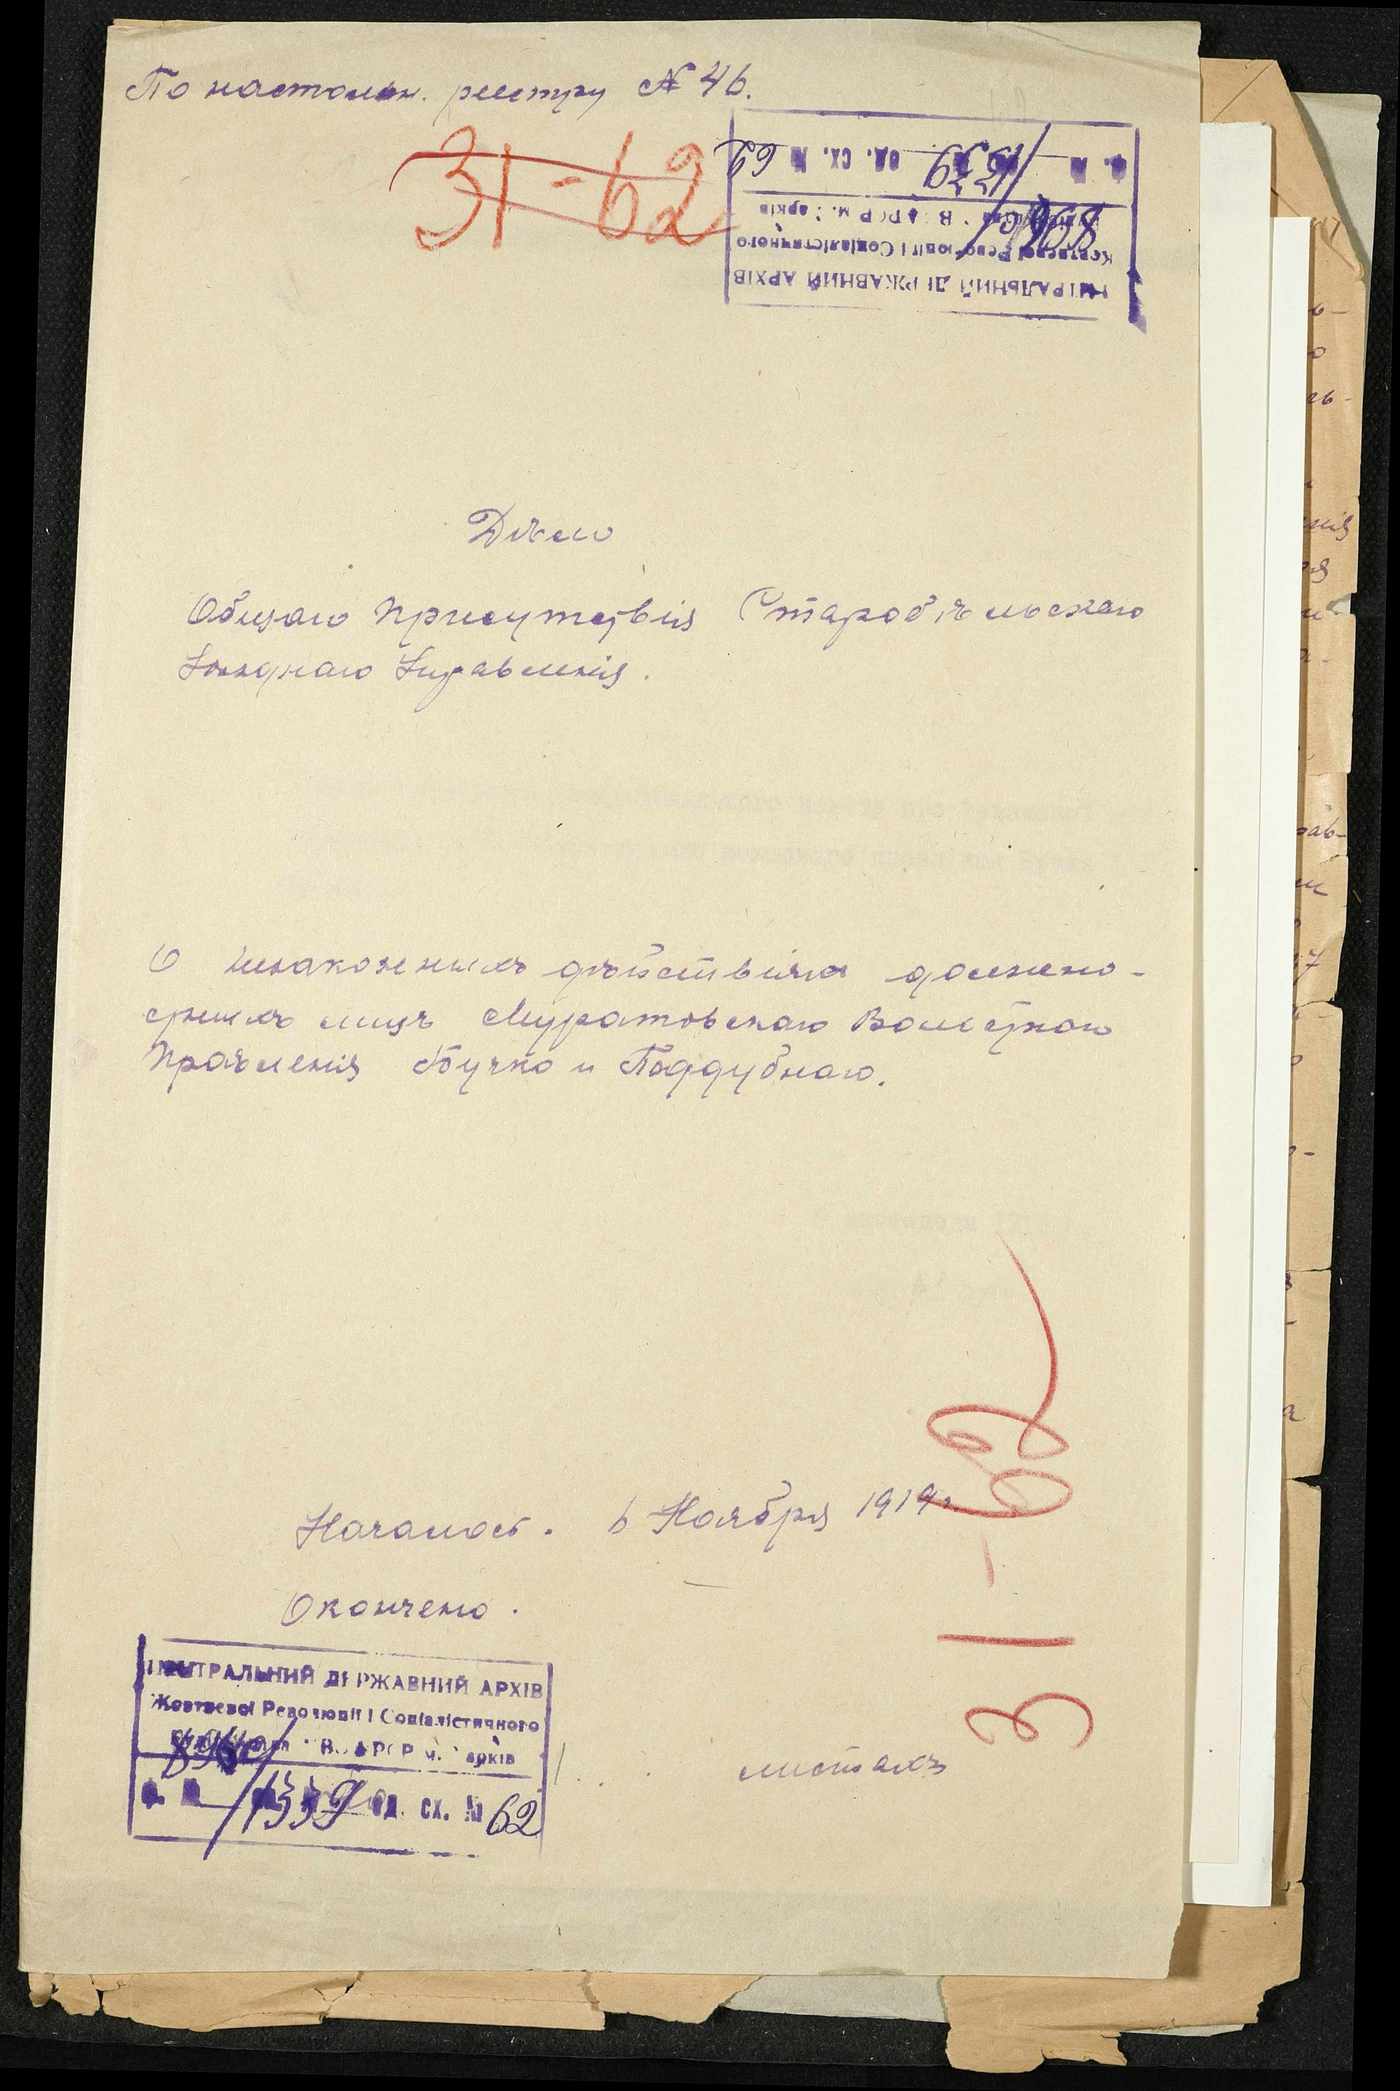 По настольн. реестру № 46.
31-62
ЦЕНТРАЛЬНИЙ ДЕРЖАВНИЙ АРХІВ
Жовтневої Революції і Соціалістичного
м. Харків
1339 од. сх. № 62
Дѣло
Общаго Присутствія Старобѣльскаго
Уѣзднаго Управленія.
О незаконныхъ дѣйствіяхъ должно-
стныхъ лицъ Муратовскаго Волостного
Правленія Бучко и Поддубнаго.
Началось. 6 Ноября 1919 г.
Окончено.
31-62
ЦЕНТРАЛЬНИЙ ДЕРЖАВНИЙ АРХІВ
Жовтневої Революції і Соціалістичного
м. Харків
1339 од. сх. № 62
листахъ